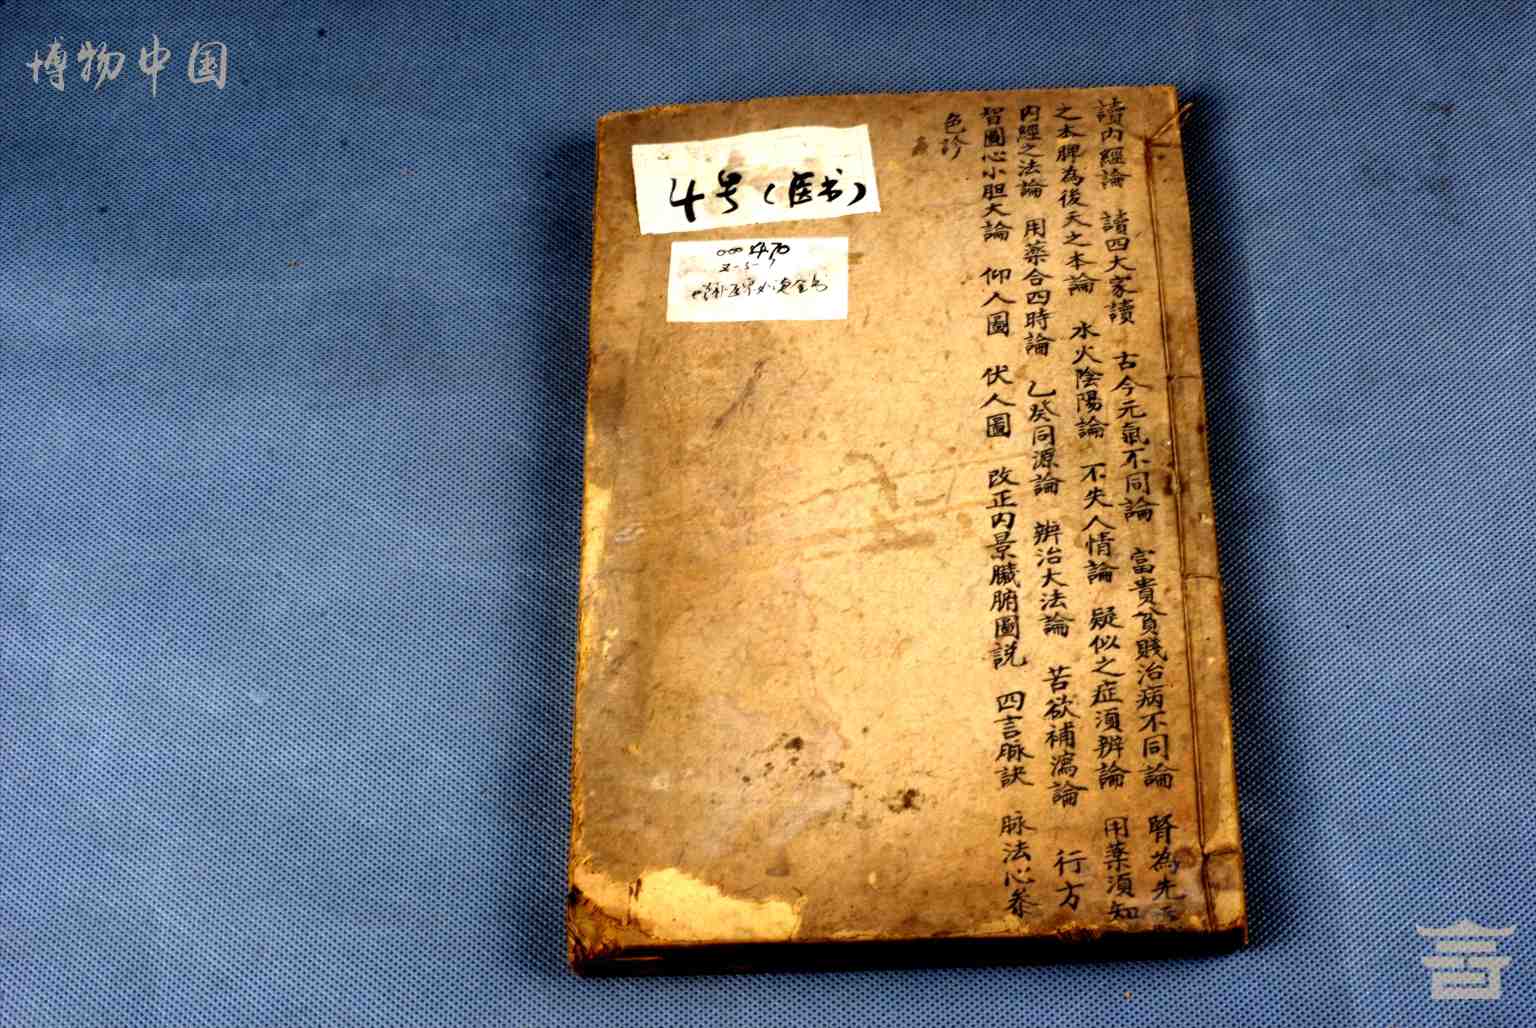 博物中国
4号（医书）
讀内經論 讀四大家讀 古今元氣不同論 富貴貧賤治病不同論 腎為先天
之本脾為後天之本論 水火陰陽論 不失人情論 疑似之症須辨論 用藥須知
内經之法論 用藥合四時論 乙癸同源論 辨治大法論 苦欲補瀉論 行方
智圓心小胆大論 仰人圖 伏人圖 改正内景臟腑圖説 四言脈訣 脉法心参
色診